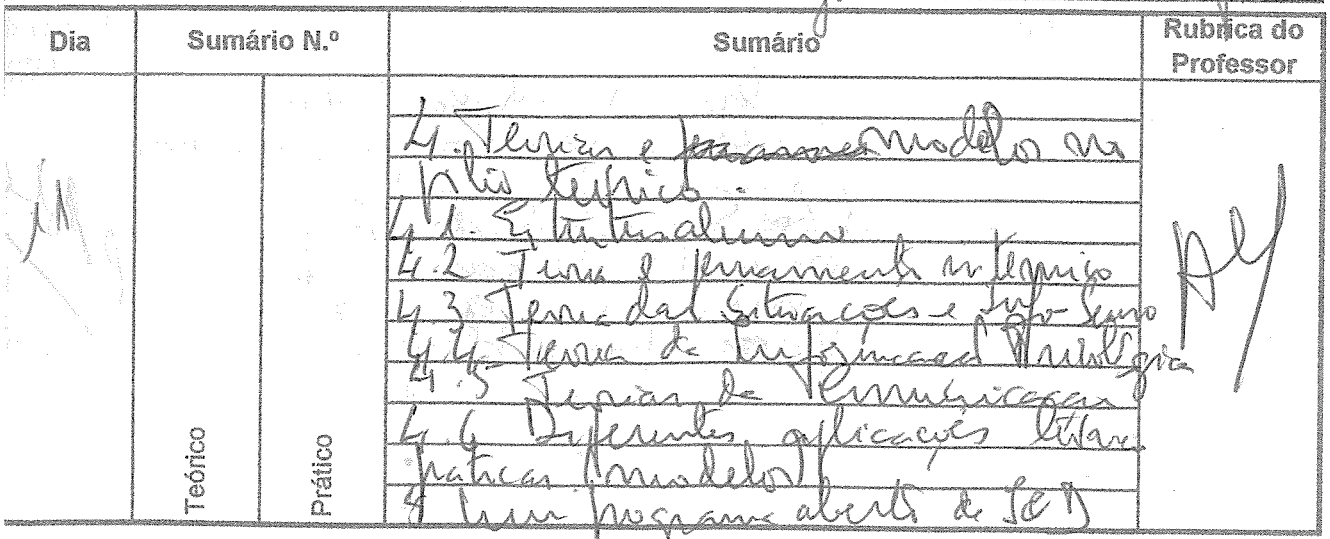 Dia
Sumário N.º
Sumário
Rubrica do
Professor
Teórico
Prático
4. Teorias e modelos no
4.1. Estruturalismo
4.2 Teoria e pensamento sistémico
4.3 Teoria das Situações e Info-Sense
4.4. Teoria da Informação
4.5 Teorias da Comunicação
4.6 Diferentes aplicações
práticas (modelos)
8 Num programa aberto de